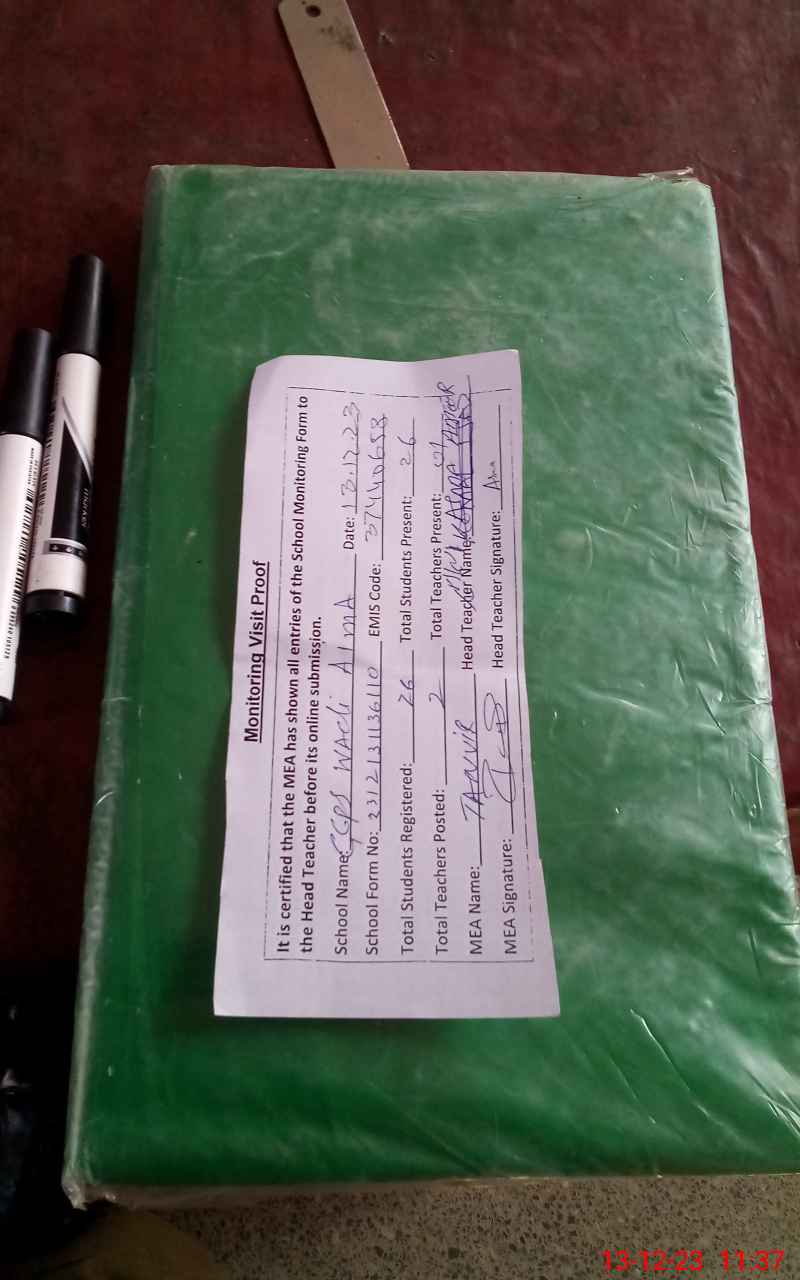 Monitoring Visit Proof
It is certified that the MEA has shown all entries of the School Monitoring Form to
the Head Teacher before its online submission.
School Name: GGPS WAcli AlmA Date: 13.12.23
School Form No: 2312131136110 EMIS Code: 37440658
Total Students Registered: 26 Total Students Present: 26
Total Teachers Posted: 2 Total Teachers Present: 01
MEA Name: TANVIR Head Teacher Name:
MEA Signature: Head Teacher Signature:
13-12-23 11:37